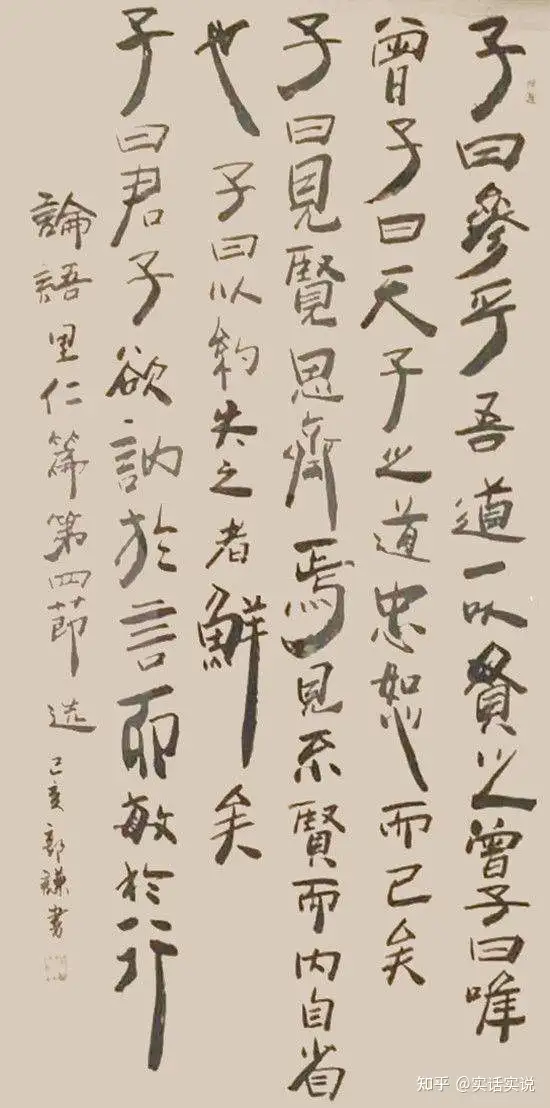 子曰參乎吾道一以貫之曾子曰唯
曾子曰天子之道忠恕而已矣
子曰見賢思齊焉見不賢而内自省
也 子曰以約失之者鮮矣
子曰君子欲訥於言而敏於行
論語里仁篇第四節 选 己亥 郭謙書
知乎 @实话实说